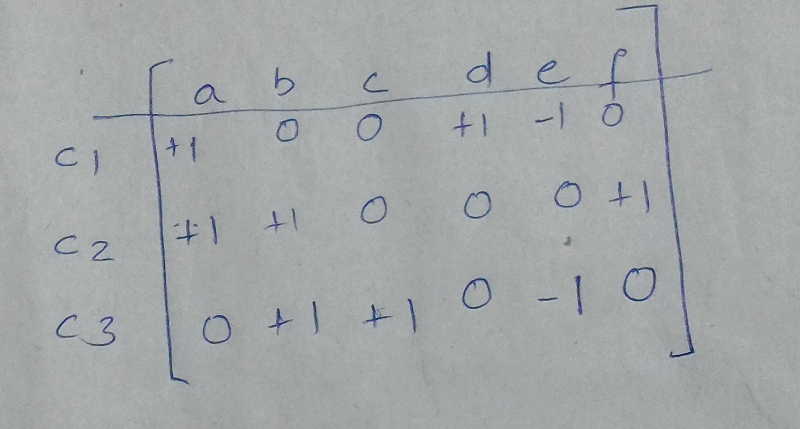 a b c d e f
c1 +1 0 0 +1 -1 0
c2 +1 +1 0 0 0 +1
c3 0 +1 +1 0 -1 0